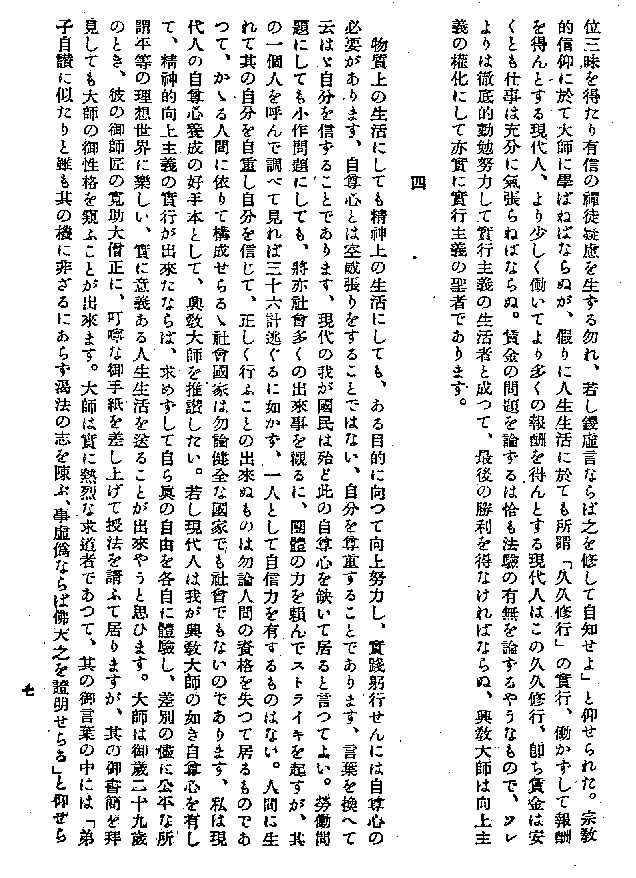 位三昧を得たり有信の禪徒疑慮を生する勿れ、若し謬虛言ならば之を修して自知せよ」と仰せられた。宗敎
的信仰に於て大師に學ばねばならぬが、假りに人生生活に於ても所謂「久久修行」の實行、働かずして報酬
を得んとする現代人、より少しく働いてより多くの報酬を得んとする現代人はこの久久修行、卽ち賃金は安
くとも仕事は充分に氣張らねばならぬ。賃金の問題を論するは恰も法驗の有無を論するやうなもので、ソレ
よりは徹底的勤勉努力して實行主義の生活者と成つて、最後の勝利を得なければならぬ、興敎大師は向上主
義の權化にして亦實に實行主義の聖者であります。
四
物質上の生活にしても精神上の生活にしても、ある目的に向つて向上努力し、實踐躬行せんには自尊心の
必要があります、自尊心とは空威張りをすることではない、自分を尊重することであります、言葉を換へて
云はゞ自分を信することであります、現代の我が國民は殆ど此の自尊心を缺いて居ると言つてよい。勞働問
題にしても小作問題にしても、將亦社會多くの出來事を觀るに、團體の力を賴んでストライキを起すが、其
の一個人を呼んで調べて見れば三十六計逃ぐるに如かず、一人として自信力を有するものはない。人間に生
れて其の自分を自重し自分を信じて、正しく行ふことの出來ぬものは勿論人間の資格を失つて居るものであ
つて、かゝる人間に依りて構成せらるゝ社會國家は勿論健全な國家でも社會でもないのであります、私は現
代人の自尊心養成の好手本として、興敎大師を推讃したい。若し現代人は我が興敎大師の如き自尊心を有し
て、精神的向上主義の實行が出來たならば、求めずして自ら眞の自由を各自に體驗し、差別の儘に公平な所
謂平等の理想世界に樂しい、實に意義ある人生生活を送ることが出來やうと思ひます。大師は御歲二十九歲
のとき、彼の御師匠の寬助大僧正に、叮嚀な御手紙を差し上げて授法を請ふて居りますが、其の御書簡を拜
見しても大師の御性格を窺ふことが出來ます。大師は實に熱烈な求道者であつて、其の御言葉の中には「弟
子自讃に似たりと雖も其の機に非ざるにあらず渴法の志を陳ぶ、事虛僞ならば佛天之を證明せらる」と仰せら
七